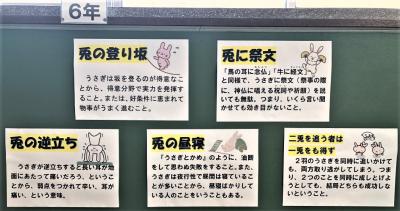 6年
兎の登り坂
うさぎは坂を登るのが得意なこ
とから、得意分野で実力を発揮す
ること。または、好条件に恵まれて
物事がうまく進むこと。
兎に祭文
「馬の耳に念仏」「牛に経文」
と同様で、うさぎに祭文（祭事の際
に、神仏に唱える祝詞や祈願）を説
いても無駄。つまり、いくら言い聞
かせても効き目がないこと。
兎の逆立ち
うさぎが逆立ちすると長い耳が地
面にあたって痛いだろう、というこ
とから、弱点をつかれて辛い、耳が
痛い、という意味。
兎の昼寝
「うさぎとかめ」のように、油断
をして思わぬ失敗をすること。また、
うさぎは夜行性で昼間は寝ているこ
とが多いことから、昼寝ばかりして
いる人のことをいうこともある。
二兎を追う者は
一兎をも得ず
２羽のうさぎを同時に追いかけて
も、両方取り逃がしてしまう。つま
り、２つのことを同時に成し上げよ
うとしても、結局どちらも成功しな
いということ。